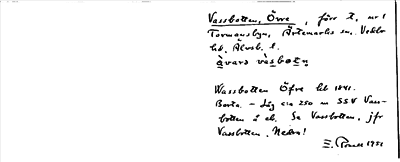 Vassbotten, Övre, förr t. nr 1
Tormansbyn, Ärtemarks sn, Vedbo
hd, Älvsb. l.
àvara vàsbotn
Wassbotten Öfre ht 1841.
Borta. – Låg ca 250 m SSV Vass-
botten å ek. Se Vassbotten, jfr
Vassbotten, Nedra!
1951